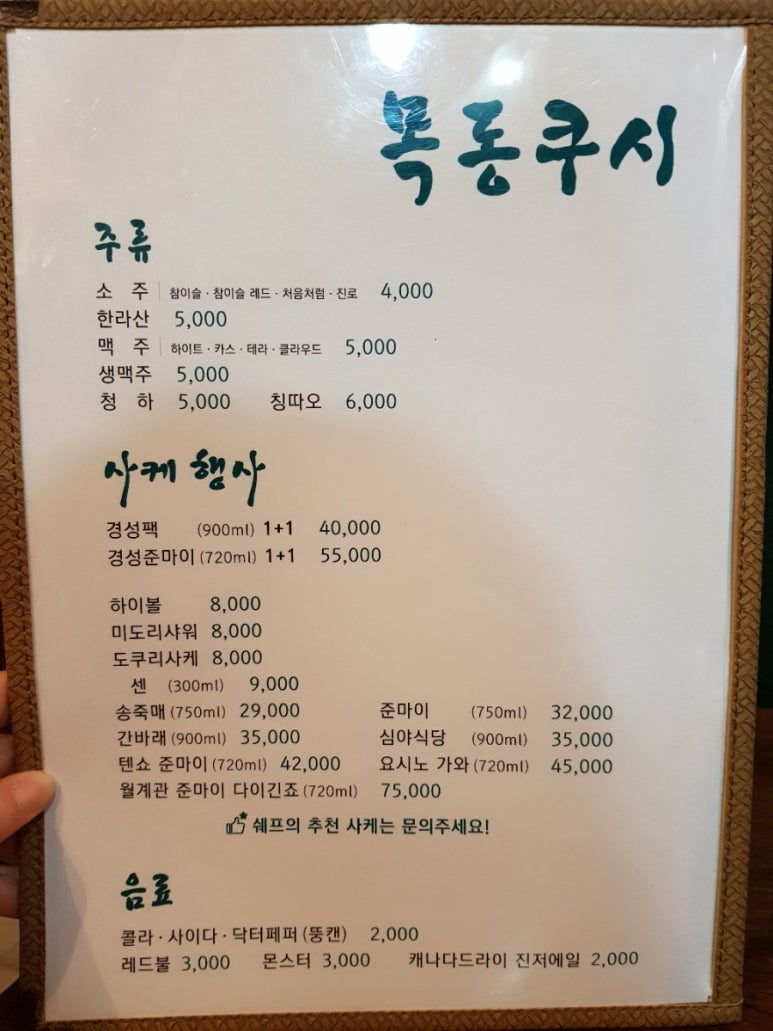 목동쿠시
주류
소 주 참이슬 · 참이슬 레드 · 처음처럼 · 진로 4,000
한라산 5,000
맥 주 하이트 · 카스 · 테라 · 클라우드 5,000
생맥주 5,000
청 하 5,000 칭따오 6,000
사케 행사
경성팩 (900ml) 1+1 40,000
경성준마이 (720ml) 1+1 55,000
하이볼 8,000
미도리샤워 8,000
도쿠리사케 8,000
센 (300ml) 9,000
송죽매 (750ml) 29,000 준마이 (750ml) 32,000
간바래 (900ml) 35,000 심야식당 (900ml) 35,000
텐쇼 준마이 (720ml) 42,000 요시노 가와 (720ml) 45,000
월계관 준마이 다이긴죠 (720ml) 75,000
쉐프의 추천 사케는 문의주세요!
음료
콜라 · 사이다 · 닥터페퍼 (뚱캔) 2,000
레드불 3,000 몬스터 3,000 캐나다드라이 진저에일 2,000